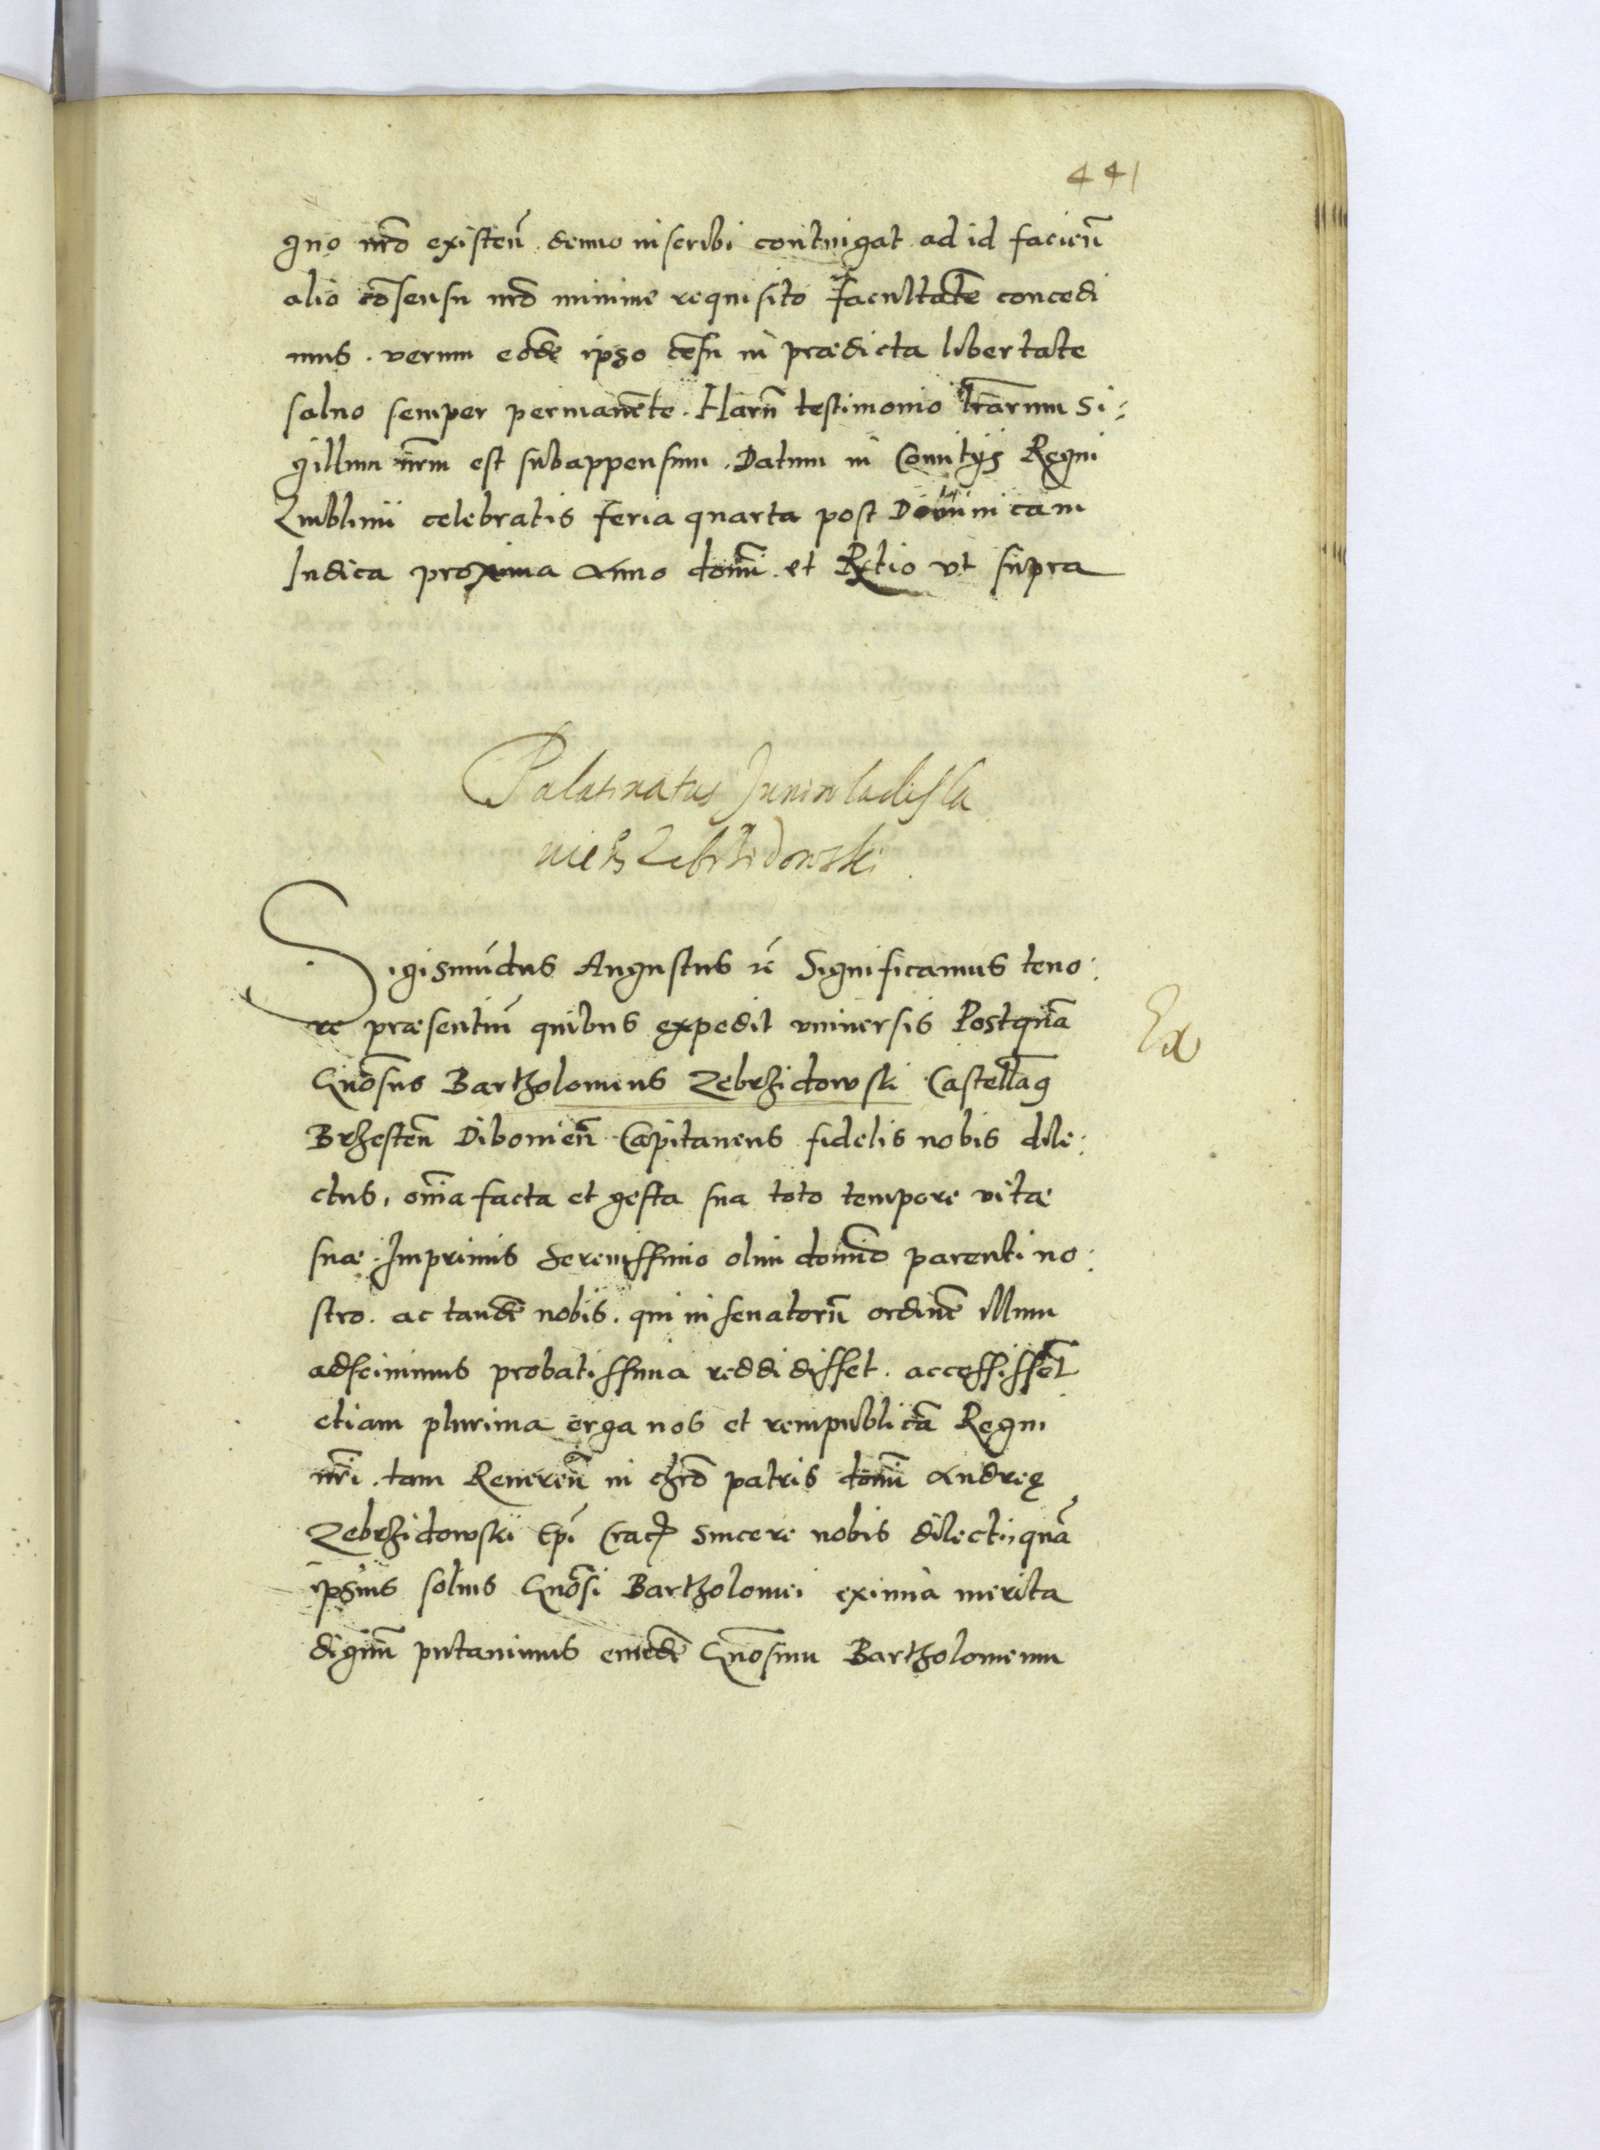 441
gno nr̃o existeñ denuo inscribi contingat ad id facieñ
alio cõsensu nr̃o minime requisito facultatẽ concedi
mus. verum eodẽ ipso cõsu in prædicta libertate
saluo semper permanẽte. Harũ testimonio lr̃arum Si:
gillum nr̃m est subappensum. Datum in Comitijs Regni
Lublinii celebratis feria quarta post Dominicam
Iudica proxima Anno domĩ et Rgtio vt supra
Palatinatus Juniuladisla
uien̄ Zebrzidowski
Sigismũdus Augustus rc̃ Significamus teno:
re præsentiũ quibus expedit vniuersis Postquã
Gñosus Bartholomeus Zebrzidowski Castellãq
Brzesteñ Dibouieñ Capitaneus fidelis nobis dile:
ctus, om̃ia facta et gesta sua toto tempore vitæ
suæ. Imprimis Serenissimo olim domĩo parenti no:
stro. ac tandẽ nobis. qui in senatorũ ordinẽ illum
adsciuimus probatissima reddidisset. accessissẽt
etiam plurima erga nos et rempublicã Regni
nr̃i. tam Reuereñ in chr̃o patris domĩ Andreę
Zebrzidowski Ep̃i Crac̃ sincere nobis dilecti, quã
ipsius solius Gñosi Bartholomei eximia merita
dignũ putauimus eundẽ Gñosum Bartholomeum
Ex